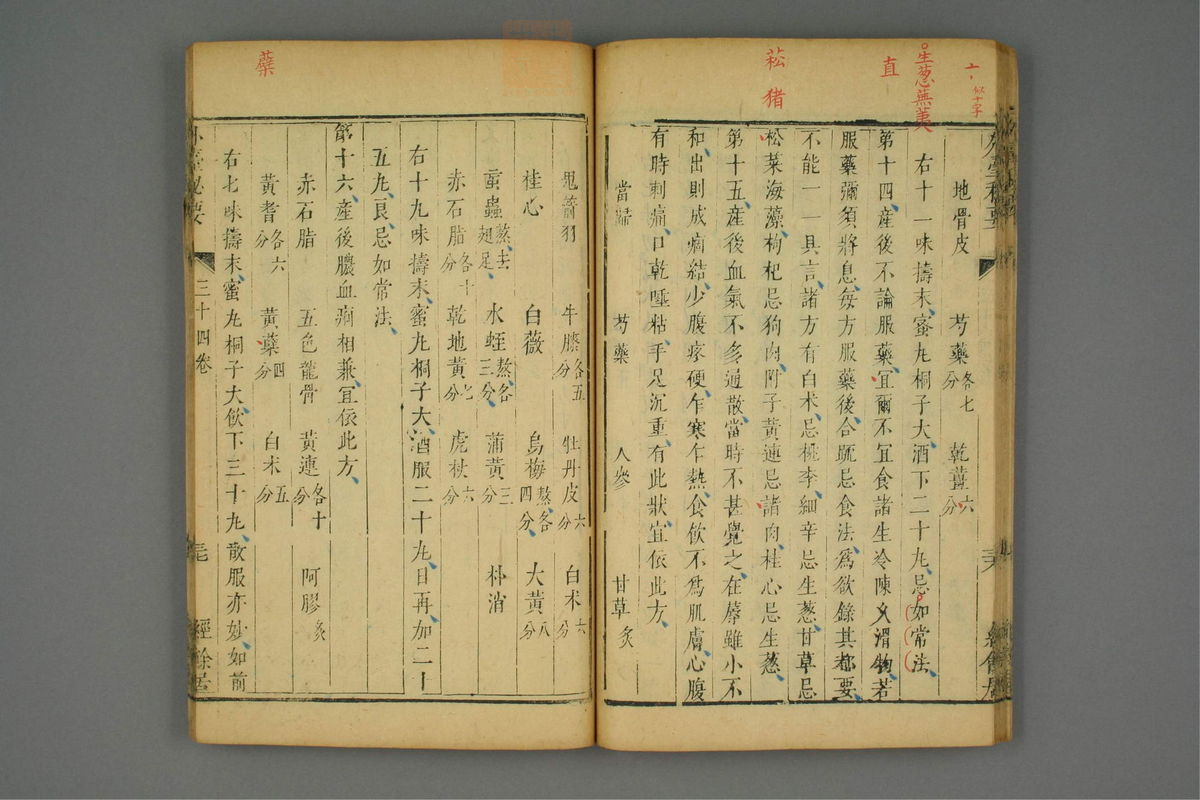 十、似十字
生葱蕪荑
直
菘
猪
外臺秘要
三六
經餘居
地骨皮 芍藥各七分 乾薑六分
右十一味擣末蜜丸桐子大酒下二十丸忌如常法
第十四産後不論服藥宜爾不宜食諸生冷陳久滑物若
服藥彌須將息每方服藥後合䟽忌食法爲欲錄其都要
不能一一具言諸方有白术忌桃李細辛忌生葱甘草忌
松菜海藻枸杞忌狗肉附子黃連忌諸肉桂心忌生葱
第十五産後血氣不多通散當時不甚覺之在蓐雖小不
和出則成痼結少腹疼硬乍寒乍熱食飲不爲肌膚心腹
有時刺痛口乾唾粘手足沉重有此狀宜依此方
當歸 芍藥 人參 甘草炙
鬼箭羽 牛膝各五分 牡丹皮六分 白术六分
桂心 白薇 烏梅熬各四分 大黃八分
䖟蟲熬去翅足 水蛭熬各三分 蒲黃三分 朴消
赤石脂各十分 乾地黃七分 虎杖六分
右十九味擣末蜜丸桐子大酒服二十丸日再加二十
五丸良忌如常法
第十六産後膿血痢相兼宜依此方
赤石脂 五色龍骨 黃連各十分 阿膠炙
黃耆各六分 黃蘗四分 白术五分
右七味擣末蜜丸桐子大飲下三十丸散服亦妙如前
蘗
外臺秘要
三十四卷
三七
經餘居